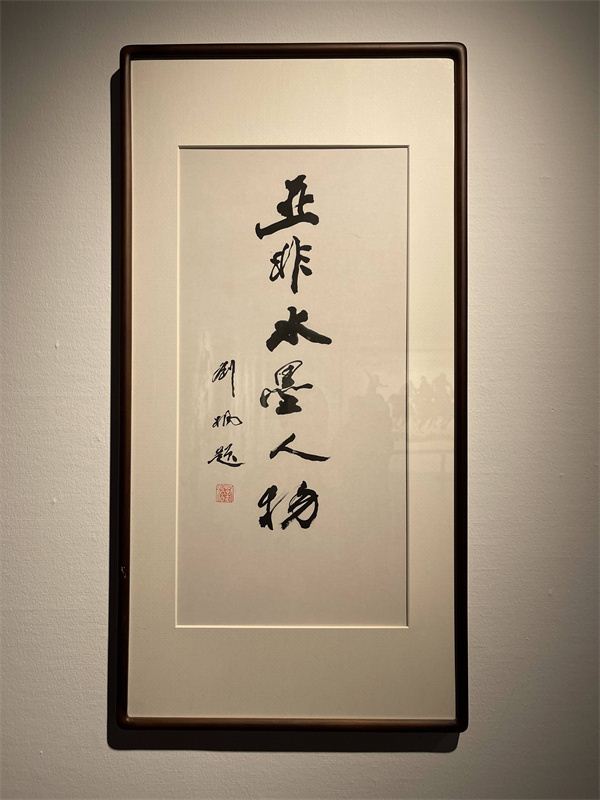 亚非水墨人物
劉枫题